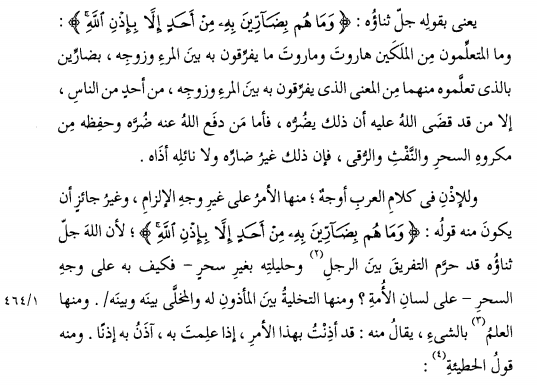 يعنى بقولِه جلّ ثناؤُه : ﴿ وَمَا هُم بِضَآرِّينَ بِهِۦ مِنْ أَحَدٍ إِلَّا بِإِذْنِ ٱللَّهِۚ ﴾ :
وما المتعلِّمون مِن المَلَكَين هاروتَ وماروتَ ما يفرِّقون به بينَ المرءِ وزوجِه ، بضارِّين
بالذى تعلَّموه منهما مِن المعنى الذى يفرِّقون به بينَ المرءِ وزوجِه ، من أحدٍ من الناسِ ،
إلا من قد قضَى اللهُ عليه أن ذلك يضُرُّه ، فأما مَن دفَع اللهُ عنه ضُرَّه وحفِظه مِن
مكروهِ السحرِ والنَّفْثِ والرُّقى ، فإن ذلك غيرُ ضارِّه ولا نائلِه أذاه .
وللإذْنِ فى كلامِ العربِ أوجهٌ ؛ منها الأمرُ على غيرِ وجهِ الإلزامِ ، وغيرُ جائزٍ أن
يكونَ منه قولُه : ﴿ وَمَا هُم بِضَآرِّينَ بِهِۦ مِنْ أَحَدٍ إِلَّا بِإِذْنِ ٱللَّهِۚ ﴾ ؛ لأن اللهَ جلّ
ثناؤُه قد حرَّم التفريقَ بينَ الرجلِ(٢) وحليلتِه بغيرِ سحرٍ - فكيف به على وجهِ
السحرِ - على لسانِ الأُمةِ ؟ ومنها التخليةُ بينَ المأذونِ له والمخلَّى بينَه وبينَه/ . ومنها ٤٦٤/١
العلمُ(٣) بالشىءِ ، يقالُ منه : قد أذِنْتُ بهذا الأمرِ ، إذا علِمتَ به ، آذَنُ به إذنًا . ومنه
قولُ الحطيئةِ(٤) :